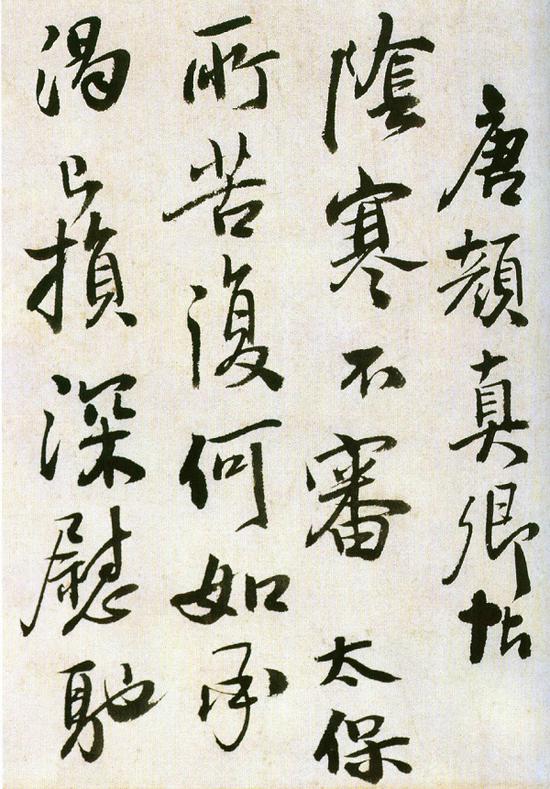 唐顏真卿帖
陰寒不審 太保
所苦復何如承
渴已損深慰馳